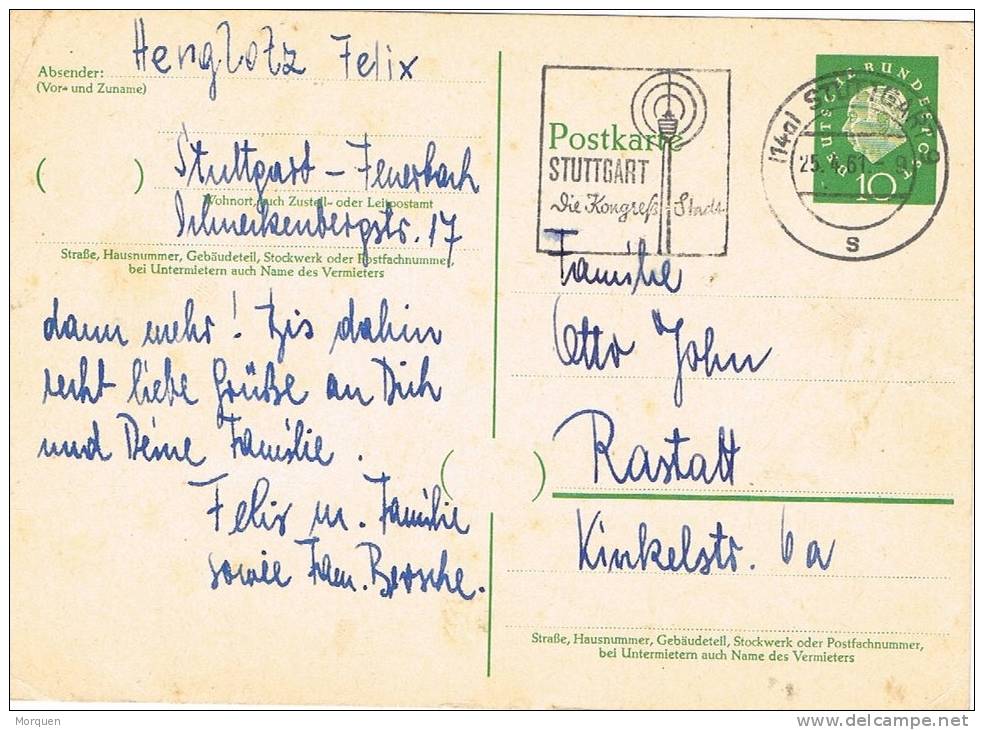 Henglotz Felix
Absender:
(Vor- und Zuname)
( )
Stuttgart - Feuerbach
Wohnort, auch Zustell- oder Leitpostamt
Schneckenbergstr. 17
Straße, Hausnummer, Gebäudeteil, Stockwerk oder Postfachnummer,
bei Untermietern auch Name des Vermieters
dann mehr! Bis dahin
recht liebe Grüße an Dich
und Deine Familie.
Felix m. Familie
sowie Fam.
Postkarte
STUTTGART
Die Kongreß-Stadt
(14a) STUTTGART
25. 4. 61 - 9
S
DEUTSCHE BUNDESPOST
10
Familie
Otto John
Rastatt
( )
Kinkelstr. 6a
Straße, Hausnummer, Gebäudeteil, Stockwerk oder Postfachnummer,
bei Untermietern auch Name des Vermieters
Morquen
http://www.delcampe.net